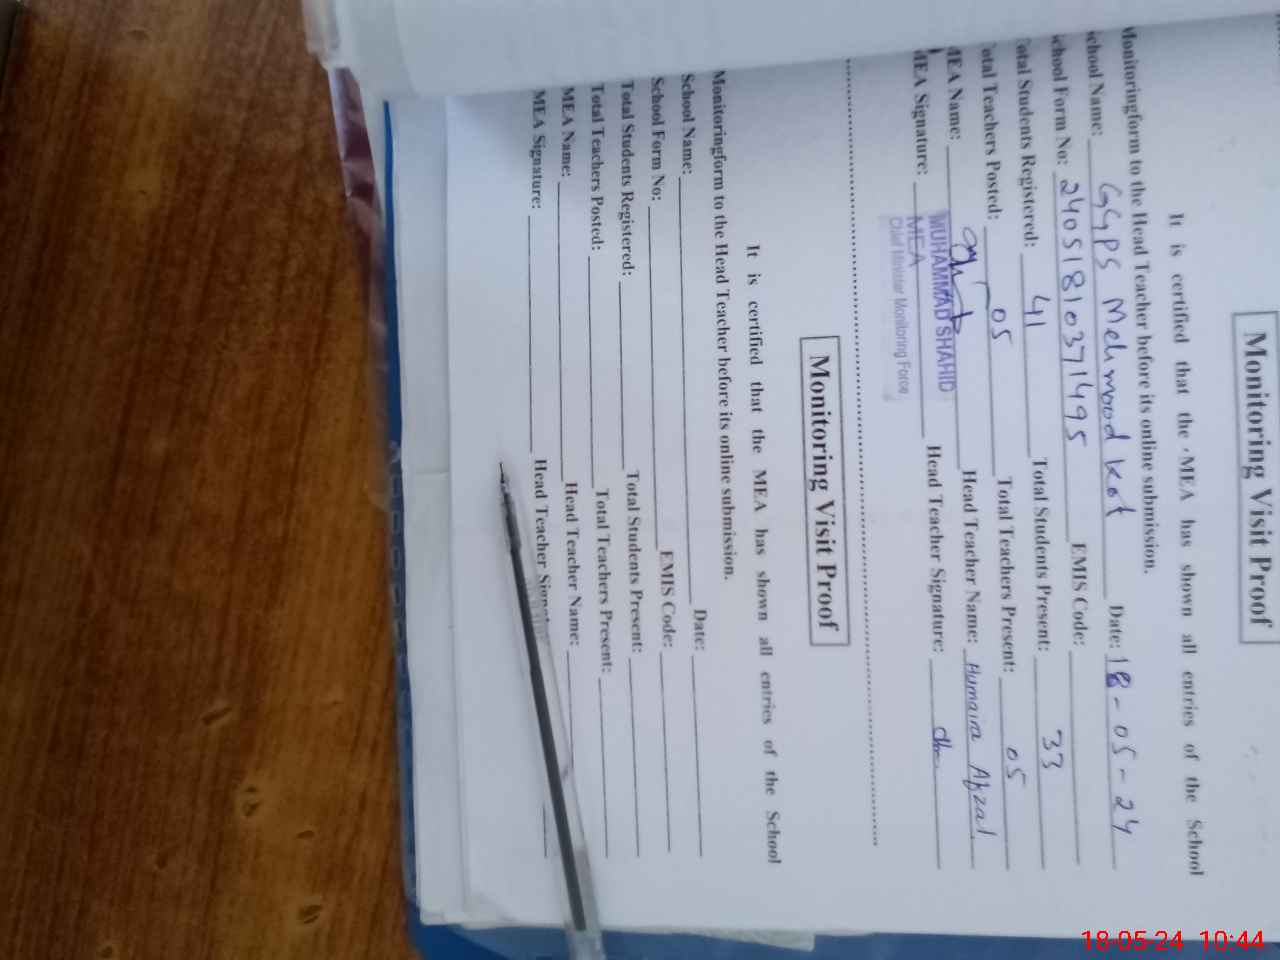 Monitoring Visit Proof
It is certified that the MEA has shown all entries of the School
Monitoringform to the Head Teacher before its online submission.
School Name: GGPS Mehmood Kot Date: 18-05-24
School Form No: 24051810371495 EMIS Code:
Total Students Registered: 41 Total Students Present: 33
Total Teachers Posted: 05 Total Teachers Present: 05
MEA Name: Head Teacher Name: Humaira Afzal
MEA Signature: Head Teacher Signature:
MUHAMMAD SHAHID
MEA
Chief Minister Monitoring Force
Monitoring Visit Proof
It is certified that the MEA has shown all entries of the School
Monitoringform to the Head Teacher before its online submission.
School Name: Date:
School Form No: EMIS Code:
Total Students Registered: Total Students Present:
Total Teachers Posted: Total Teachers Present:
MEA Name: Head Teacher Name:
MEA Signature: Head Teacher Signature
18-05-24 10:44